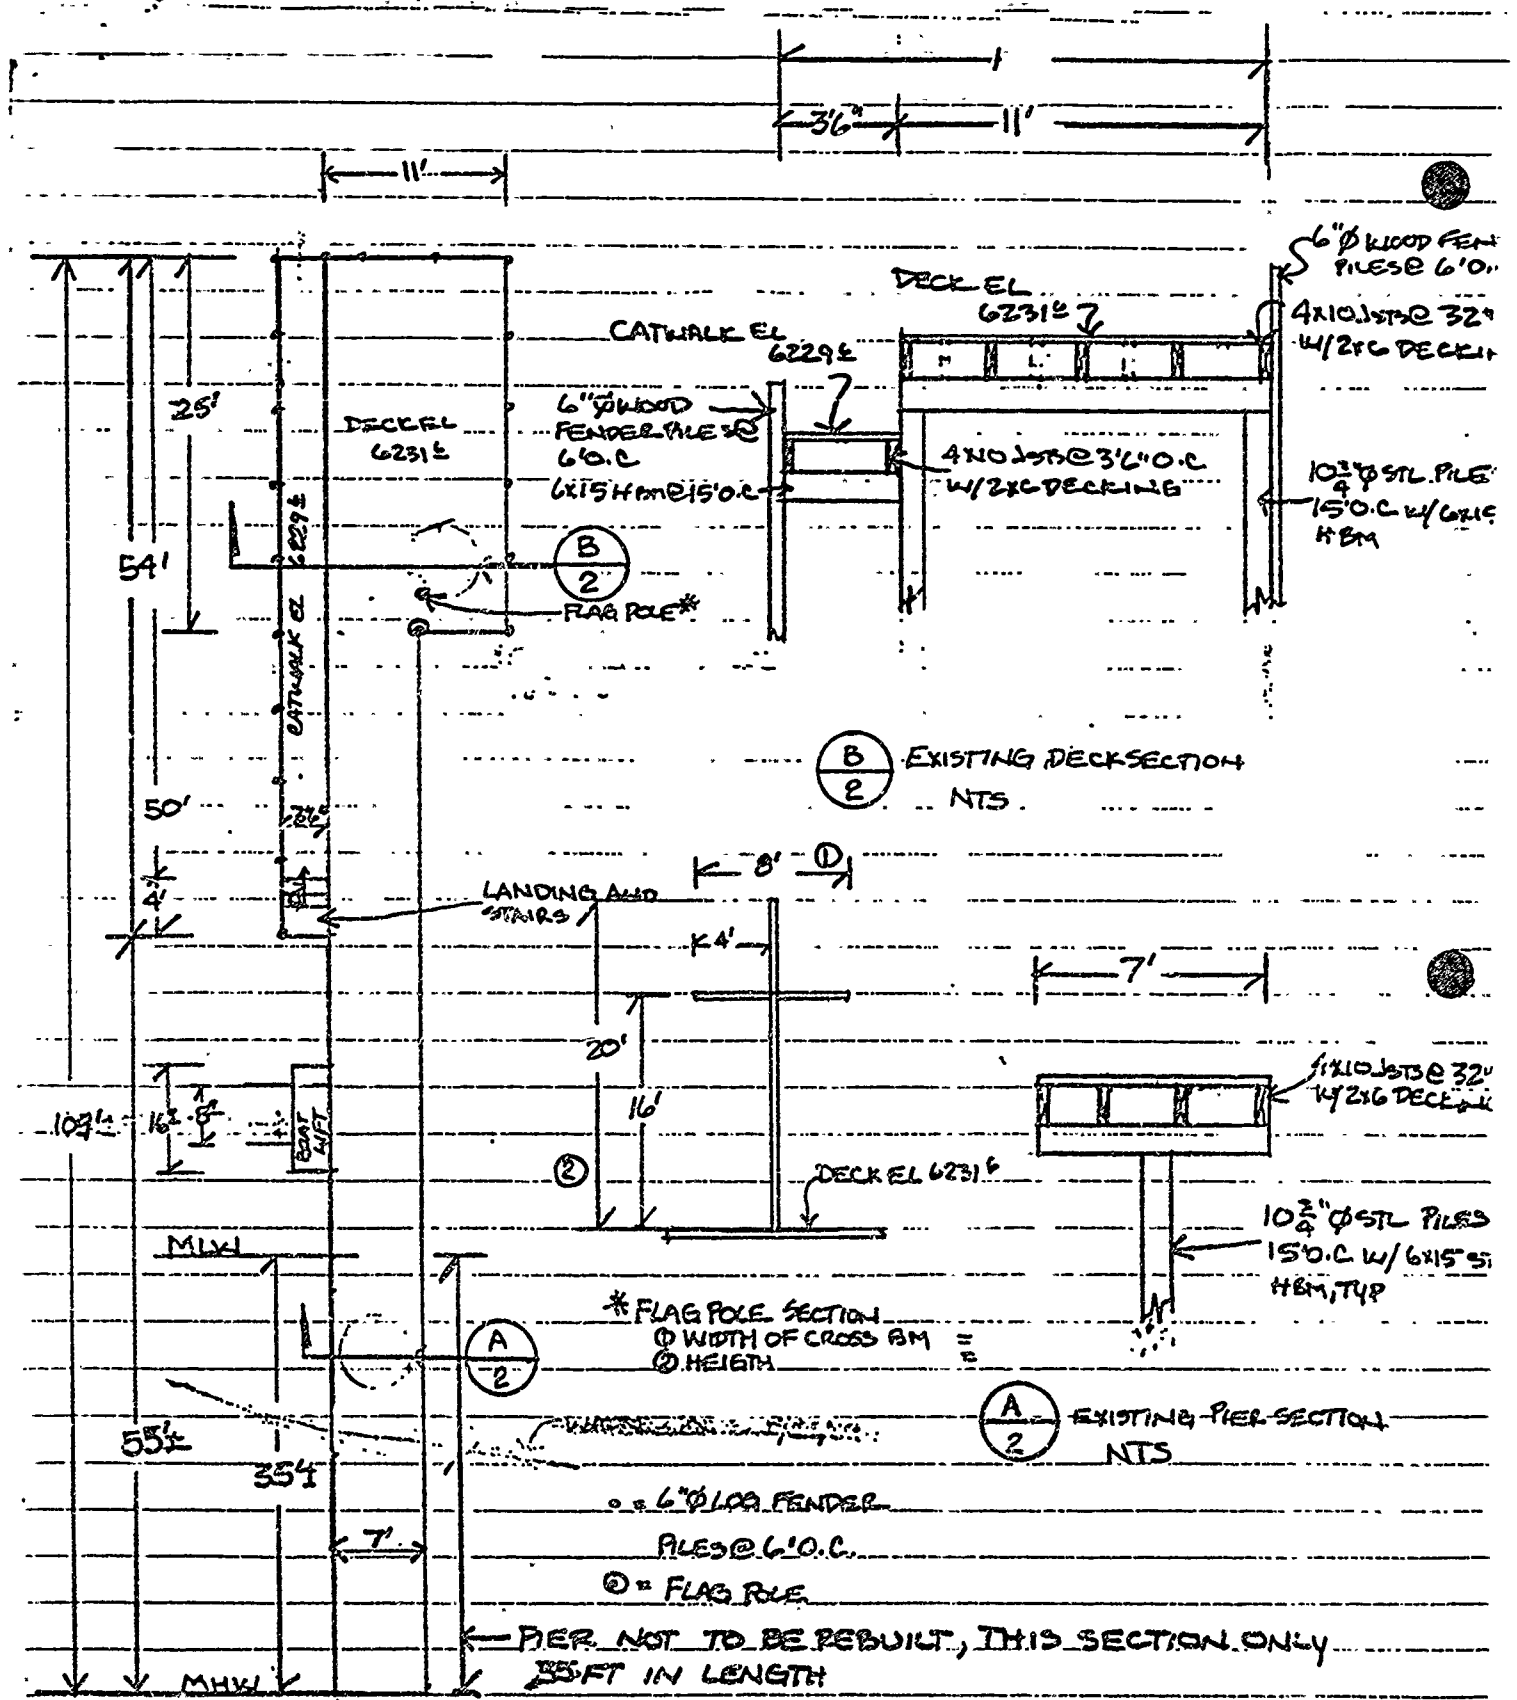 3'6"
11'
11'
6"Ø WOOD FEN
PILES@ 6'O.
DECK EL
6231±
4X10 JSTS@ 32"
W/2X6 DECKIN
CATWALK EL
6229±
25'
DECK EL
6231±
6"Ø WOOD
FENDER PILES@
6'O.C
6X15 H BM@15'O.C
4X10 JSTS@3'6"O.C
W/2X6 DECKING
10 3/4"Ø STL PILE
15'O.C W/ 6X15
H BM
54'
B
2
FLAG POLE*
CATWALK EL 6229±
B
2
EXISTING DECK SECTION
NTS
50'
3'6"
8' ①
4'
LANDING AND
STAIRS
4'
7'
20'
16'
109'±
16'±
BOAT
LIFT
4X10 JSTS@ 32"
W/2X6 DECKIN
②
DECK EL 6231±
10 3/4"Ø STL PILES
15'O.C W/ 6X15 ST
H BM, TYP
MLW
* FLAG POLE SECTION
① WIDTH OF CROSS BM =
② HEIGTH =
A
2
A
2
EXISTING PIER SECTION
NTS
55'±
35'±
o = 6"Ø LOG FENDER
PILES@ 6'O.C.
7'
◎ = FLAG POLE
PIER NOT TO BE REBUILT, THIS SECTION ONLY
35 FT IN LENGTH
MHW